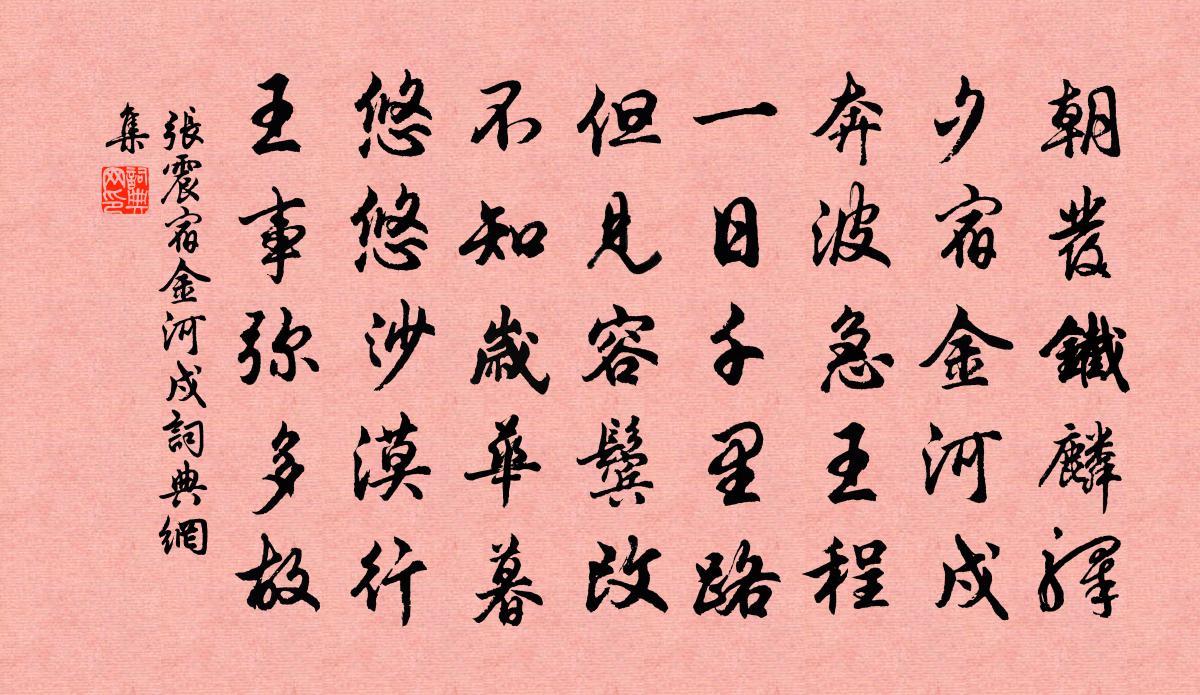 朝發鐵麟驛
夕宿金河戍
奔波急王程
一日千里路
但見容鬢改
不知歲華暮
悠悠沙漠行
王事弥多故
張震宿金河戍詞典網
集
詞典
网印